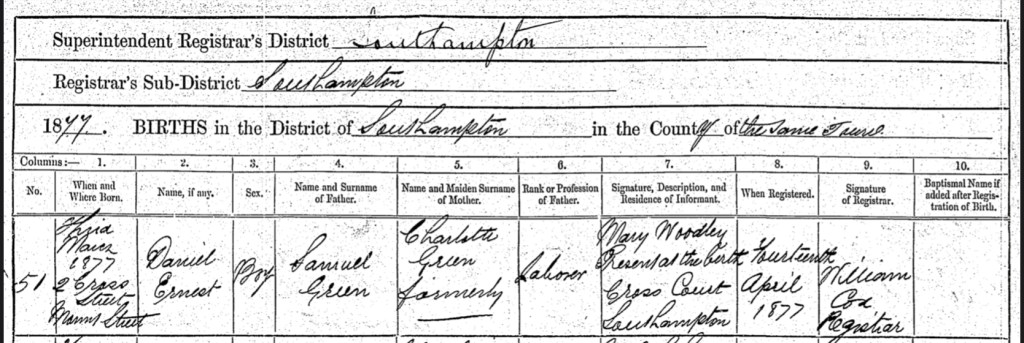 Superintendent Registrar's District Southampton
Registrar's Sub-District Southampton
1877. BIRTHS in the District of Southampton in the County of the same Town
Columns:— 1. 2. 3. 4. 5. 6. 7. 8. 9. 10.
No. When and Where Born. Name, if any. Sex. Name and Surname of Father. Name and Maiden Surname of Mother. Rank or Profession of Father. Signature, Description, and Residence of Informant. When Registered. Signature of Registrar. Baptismal Name if added after Registration of Birth.
51
Third
March
1877
2 Cross
Street
Street
Daniel
Ernest
Boy
Samuel
Green
Charlotte
Green
formerly
Laborer
Mary Woodley
Present at the birth
Cross Court
Southampton
Fourteenth
April
1877
William
Cox
Registrar